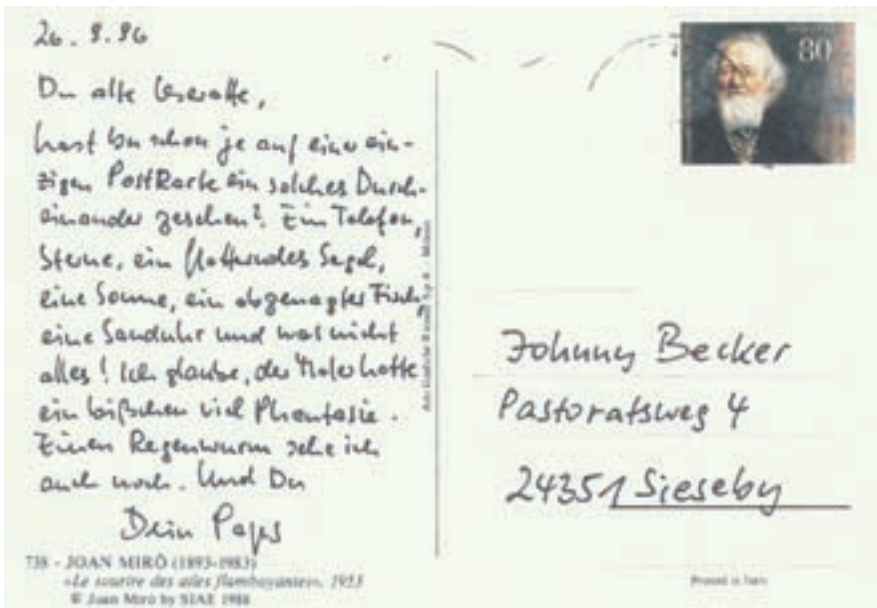 26.9.96
Du alte Leseratte,
hast Du schon je auf einer ein-
zigen Postkarte ein solches Durch-
einander gesehen? Ein Telefon,
Sterne, ein flatterndes Segel,
eine Sonne, ein abgenagter Fisch,
eine Sanduhr und was nicht
alles! Ich glaube, der Maler hatte
ein bißchen viel Phantasie.
Einen Regenwurm sehe ich
auch noch. Und Du
Dein Paps
738 - JOAN MIRÓ (1893-1983)
«Le sourire des ailes flamboyantes», 1953
© Joan Miró by SIAE 1988
80
Johnny Becker
Pastoratsweg 4
24351 Sieseby
Printed in Italy